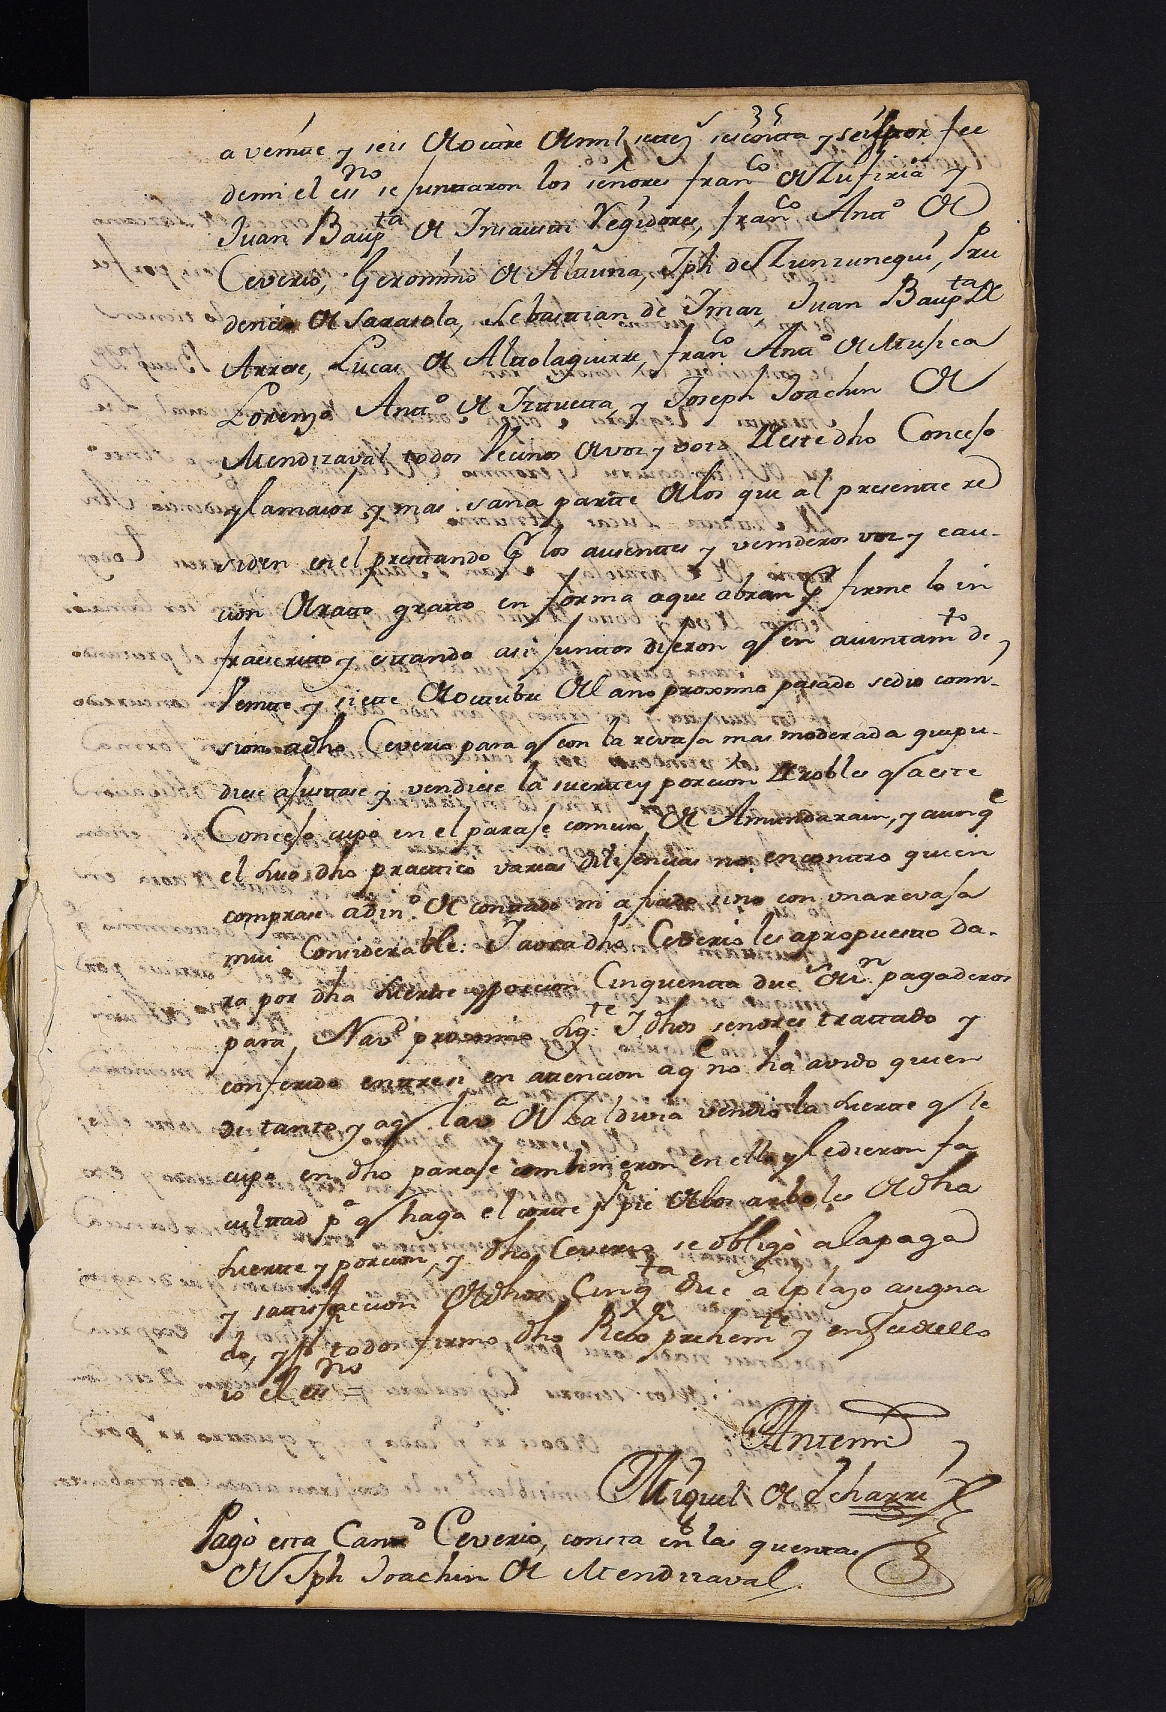 35
a veintte y seis de octtre de mil settes sesentta y seis por fee
de mi el essno se junttaron los señores Franco de Zufiria y
Juan Baupta de Insausti Regidores, Franco Antto de
Ceverio, Geronimo de Alauna, Jph de Zunzunegui, Pru
dencio de Sarasola, Sebasttian de Imaz, Juan Baupta de
Arrese, Lucas de Alttolaguirre, Franco Antto de Mujica
Lorenzo Antto de Iztuetta, y Joseph Joachin de
Mendizaval todos Vecinos de voz y voto de este dho Concejo
y la maior y mas sana partte de los que al presentte re
siden en el presttando por los ausenttes y venideros voz y cau-
cion de ratto gratto en forma a que abran por firme lo in
fraescritto y esttando asi junttos dijeron q en aiunttamto de
Veintte y siette de octtubre del año proximo pasado se dio comi-
sion a dho Ceverio para q con la revaja mas moderada que pu-
diese ajusttase y vendiese la suertte y porcion de robles q a este
Concejo cupo en el paraje comun de Amundarain, y aunqe
el suso dho practticó varias dilijencias no encontro quien
comprase a dino de conttado ni a fiado sino con una revaja
mui Considerable: Y aora dho Ceverio les a propuestto da-
ra por dha suertte y porcion Cinquentta ducs de vn pagaderos
para Navd proximo sigte: Y dhos señores trattado y
conferido enttre si en attencion a qe no ha avido quien
de tanto y a q la va de Zaldivia vendio la suertte q le
cupo en dho paraje combinieron en ello y le dieron fa
culttad pa q haga el cortte por pie de los arboles de dha
suertte y porcion, y dho Ceverio se obligó a la paga
y sattisfaccion de dhos Cinqta ducs al plazo asigna
do, y por todos firmo dho Rexor prehemte y en fee de ello
io el essno =
Antemi
Miguel de Echarri
Pagó esta Cantd Ceverio, consta en las quentas
de Jph Joachin de Mendizaval.